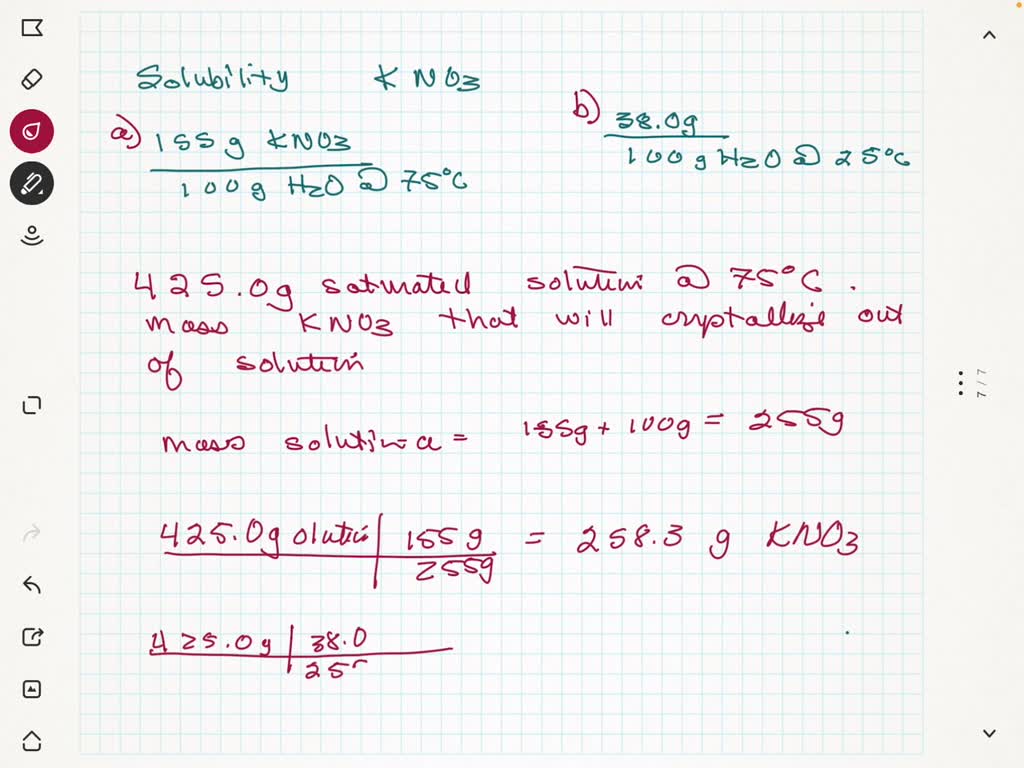 Solubility KNO3
a) 155g KNO3
100g H2O @ 75°C
b) 38.0g
100g H2O @ 25°C
425.0g saturated solution @ 75°C.
mass KNO3 that will cryptallize out
of solution
mass solution a = 155g + 100g = 255g
425.0g olution 155g = 258.3 g KNO3
255g
425.0g 38.0
25
7/7